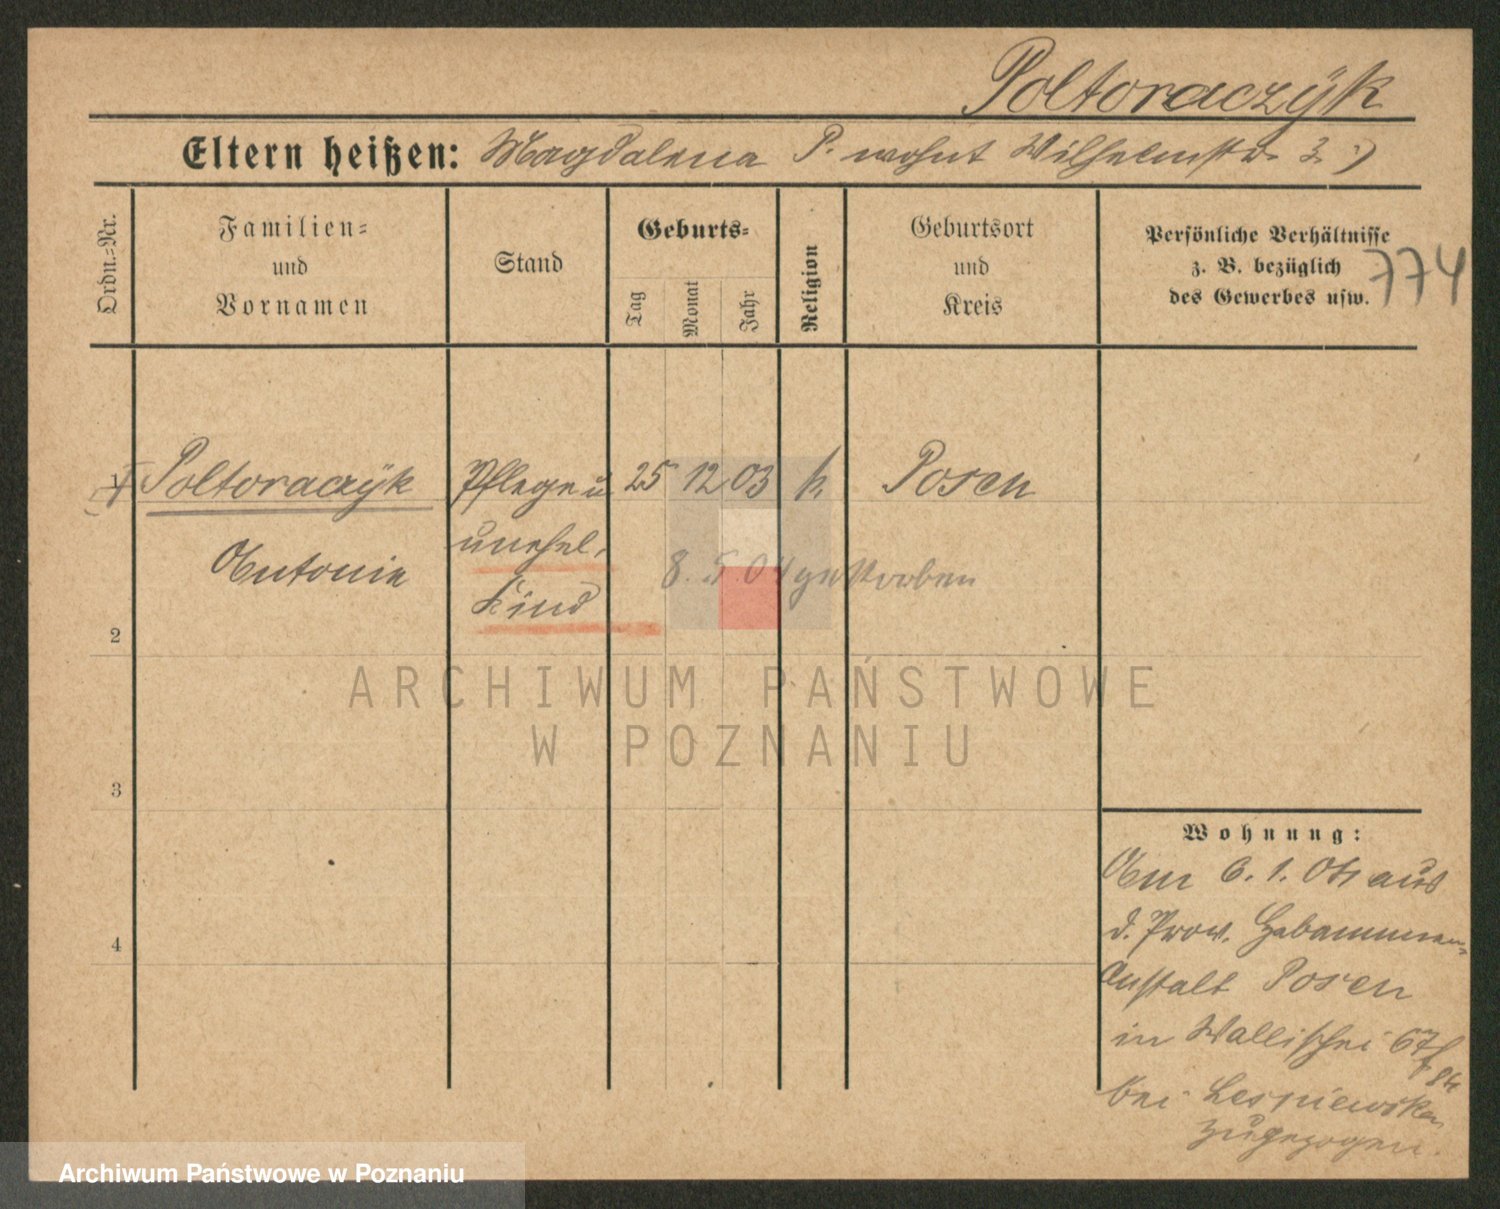 Poltoraczÿk
Eltern heißen: Magdalena P. wohnt Wilhelmstr. 3.
Ordn.-Nr.
Familien-
und
Vornamen
Stand
Geburts-
Tag
Monat
Jahr
Religion
Geburtsort
und
Kreis
Persönliche Verhältnisse
z. B. bezüglich
des Gewerbes usw.
774
1 Poltoraczÿk Pflege u 25 12 03 k Posen
Antonie unehel.
Kind
8. 5. 04 gestorben
2
3
4
Wohnung:
Am 6. 1. 04 aus
d. Prov. Hebammen-
Anstalt Posen
in Wallischei 67
bei Lespiewska
zugezogen.
ARCHIWUM PAŃSTWOWE
W POZNANIU
Archiwum Państwowe w Poznaniu